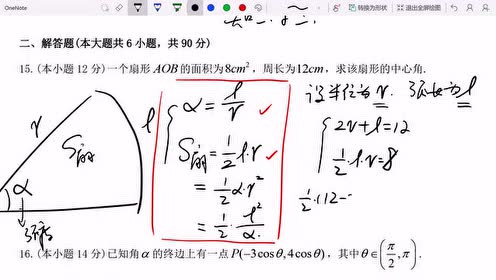 OneNote
转换为形状
退出全屏绘图
二、解答题(本大题共 6 小题，共 90 分)
15.(本小题 12 分)一个扇形 AOB 的面积为8cm²，周长为12cm，求该扇形的中心角.
r
S扇
l
α
α = l/r
S扇 = 1/2 l·r
= 1/2 α·r²
= 1/2 · l²/α
设半径为 r. 弧长为 l
2r+l=12
1/2 l·r=8
1/2·(12-
16.(本小题 14 分)已知角 α 的终边上有一点 P(-3cosθ,4cosθ)，其中θ∈(π/2,π).